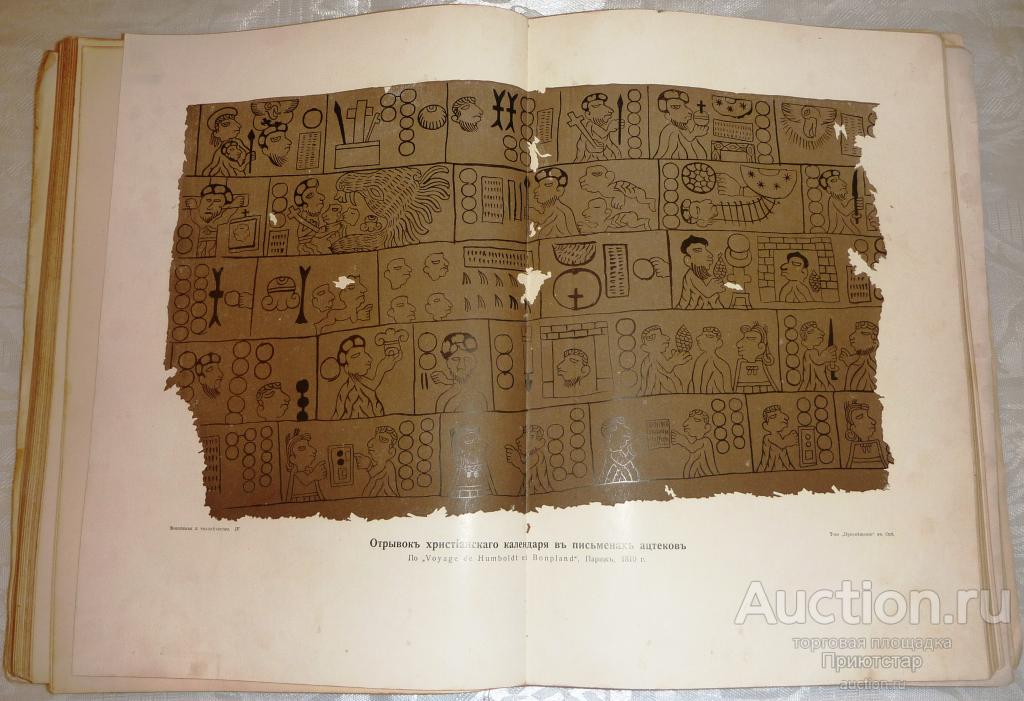 Вселенная и человѣчество. IV
Т-во „Просвѣщеніе“ въ Спб.
Отрывокъ христіанскаго календаря въ письменахъ ацтековъ
По „Voyage de Humboldt et Bonpland“, Парижъ, 1810 г.
Auction.ru
торговая площадка
Приютстар
auction.ru